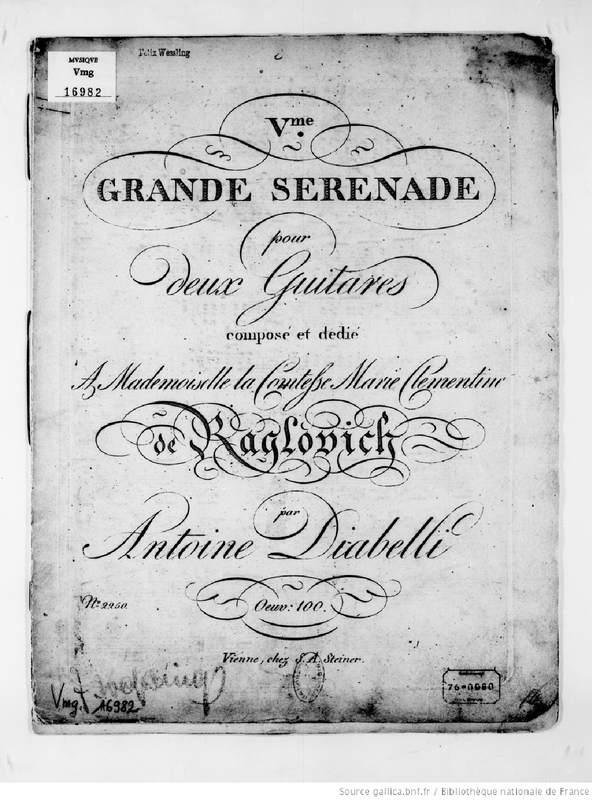 Felix Wessling
MVSIQVE
Vmg
16982
Vme.
GRANDE SERENADE
pour
deux Guitares
composé et dedié
A Mademoiselle la Comtesse Marie Clementine
de Raglovich
par
Antoine Diabelli
Oeuv: 100.
No. 2250.
Vienne, chez S. A. Steiner.
Vmg. 16982
Source gallica.bnf.fr / Bibliothèque nationale de France